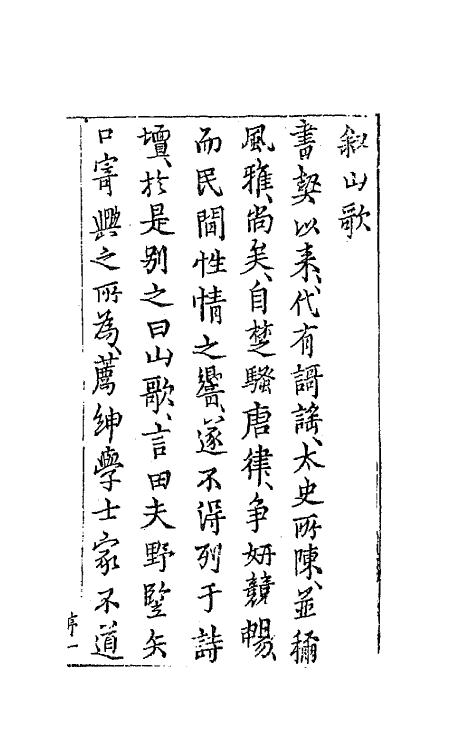 叙山歌
書契以來、代有謌謠、太史所陳、並稱
風雅、尚矣、自楚騷唐律、争妍競暢、
而民間性情之響、遂不得列于詩
壇、於是别之曰山歌、言田夫野竪矢
口寄興之所為、薦紳學士家不道
序一